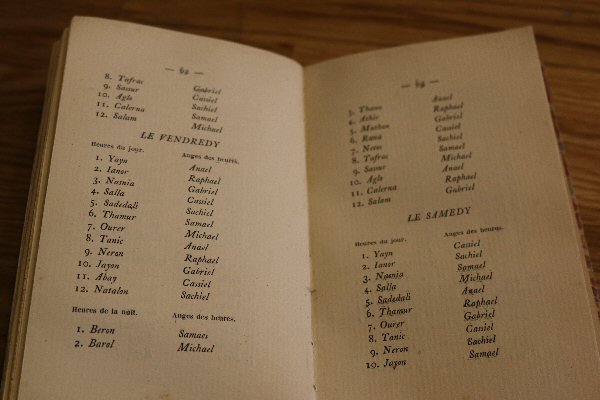 — 62 —
8. Tafrac Gabriel
9. Sassur Cassiel
10. Aglo Sachiel
11. Calerna Samael
12. Salam Michael
LE VENDREDY
Heures du jour. Anges des heures.
1. Yayn Anael
2. Ianor Raphael
3. Nasnia Gabriel
4. Salla Cassiel
5. Sadedali Sachiel
6. Thamur Samael
7. Ourer Michael
8. Tanic Anael
9. Neron Raphael
10. Jayon Gabriel
11. Abay Cassiel
12. Natalon Sachiel
Heures de la nuit. Anges des heures.
1. Beron Samael
2. Barol Michael
— 63 —
3. Thanu Anael
4. Athir Raphael
5. Mathon Gabriel
6. Rana Cassiel
7. Netos Sachiel
8. Tafrac Samael
9. Sassur Michael
10. Aglo Anael
11. Calerna Raphael
12. Salam Gabriel
LE SAMEDY
Heures du jour. Anges des heures.
1. Yayn Cassiel
2. Ianor Sachiel
3. Nasnia Samael
4. Salla Michael
5. Sadedali Anael
6. Thamur Raphael
7. Ourer Gabriel
8. Tanic Cassiel
9. Neron Sachiel
10. Jayon Samael